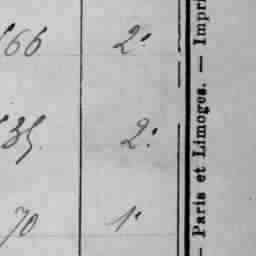 66 2.
35. 2.
70 1.
— Paris et Limoges. — Impri